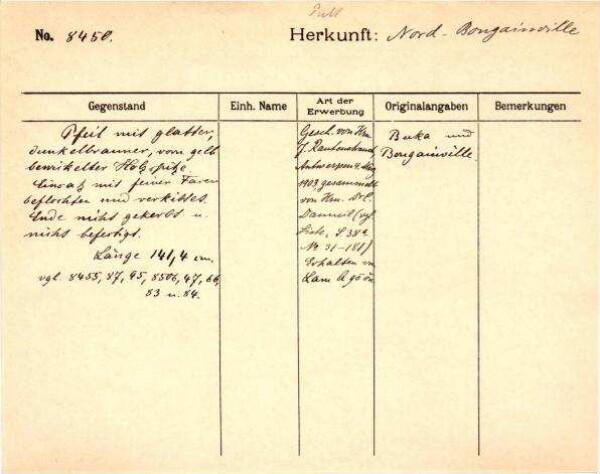 No. 8450.
Herkunft: Nord-Bougainville
Gegenstand
Einh. Name
Art der Erwerbung
Originalangaben
Bemerkungen
Pfeil mit glatter,
dunkelbrauner, vorn gelb
bewickelter Holzspitze.
Einsatz mit feiner Faser
beflochten und verkittet.
Ende nicht gekerbt u.
nicht befestigt.
Länge 141,4 cm.
vgl. 8455, 87, 95, 8506, 47, 66,
83 u. 84.
Gesch. von Hrn.
J.
Antwerpen
1903, gesammelt
von Hrn. Dr.
(vgl.
Liste, S 38a
No 31-181)
Erhalten
Buka und
Bougainville.